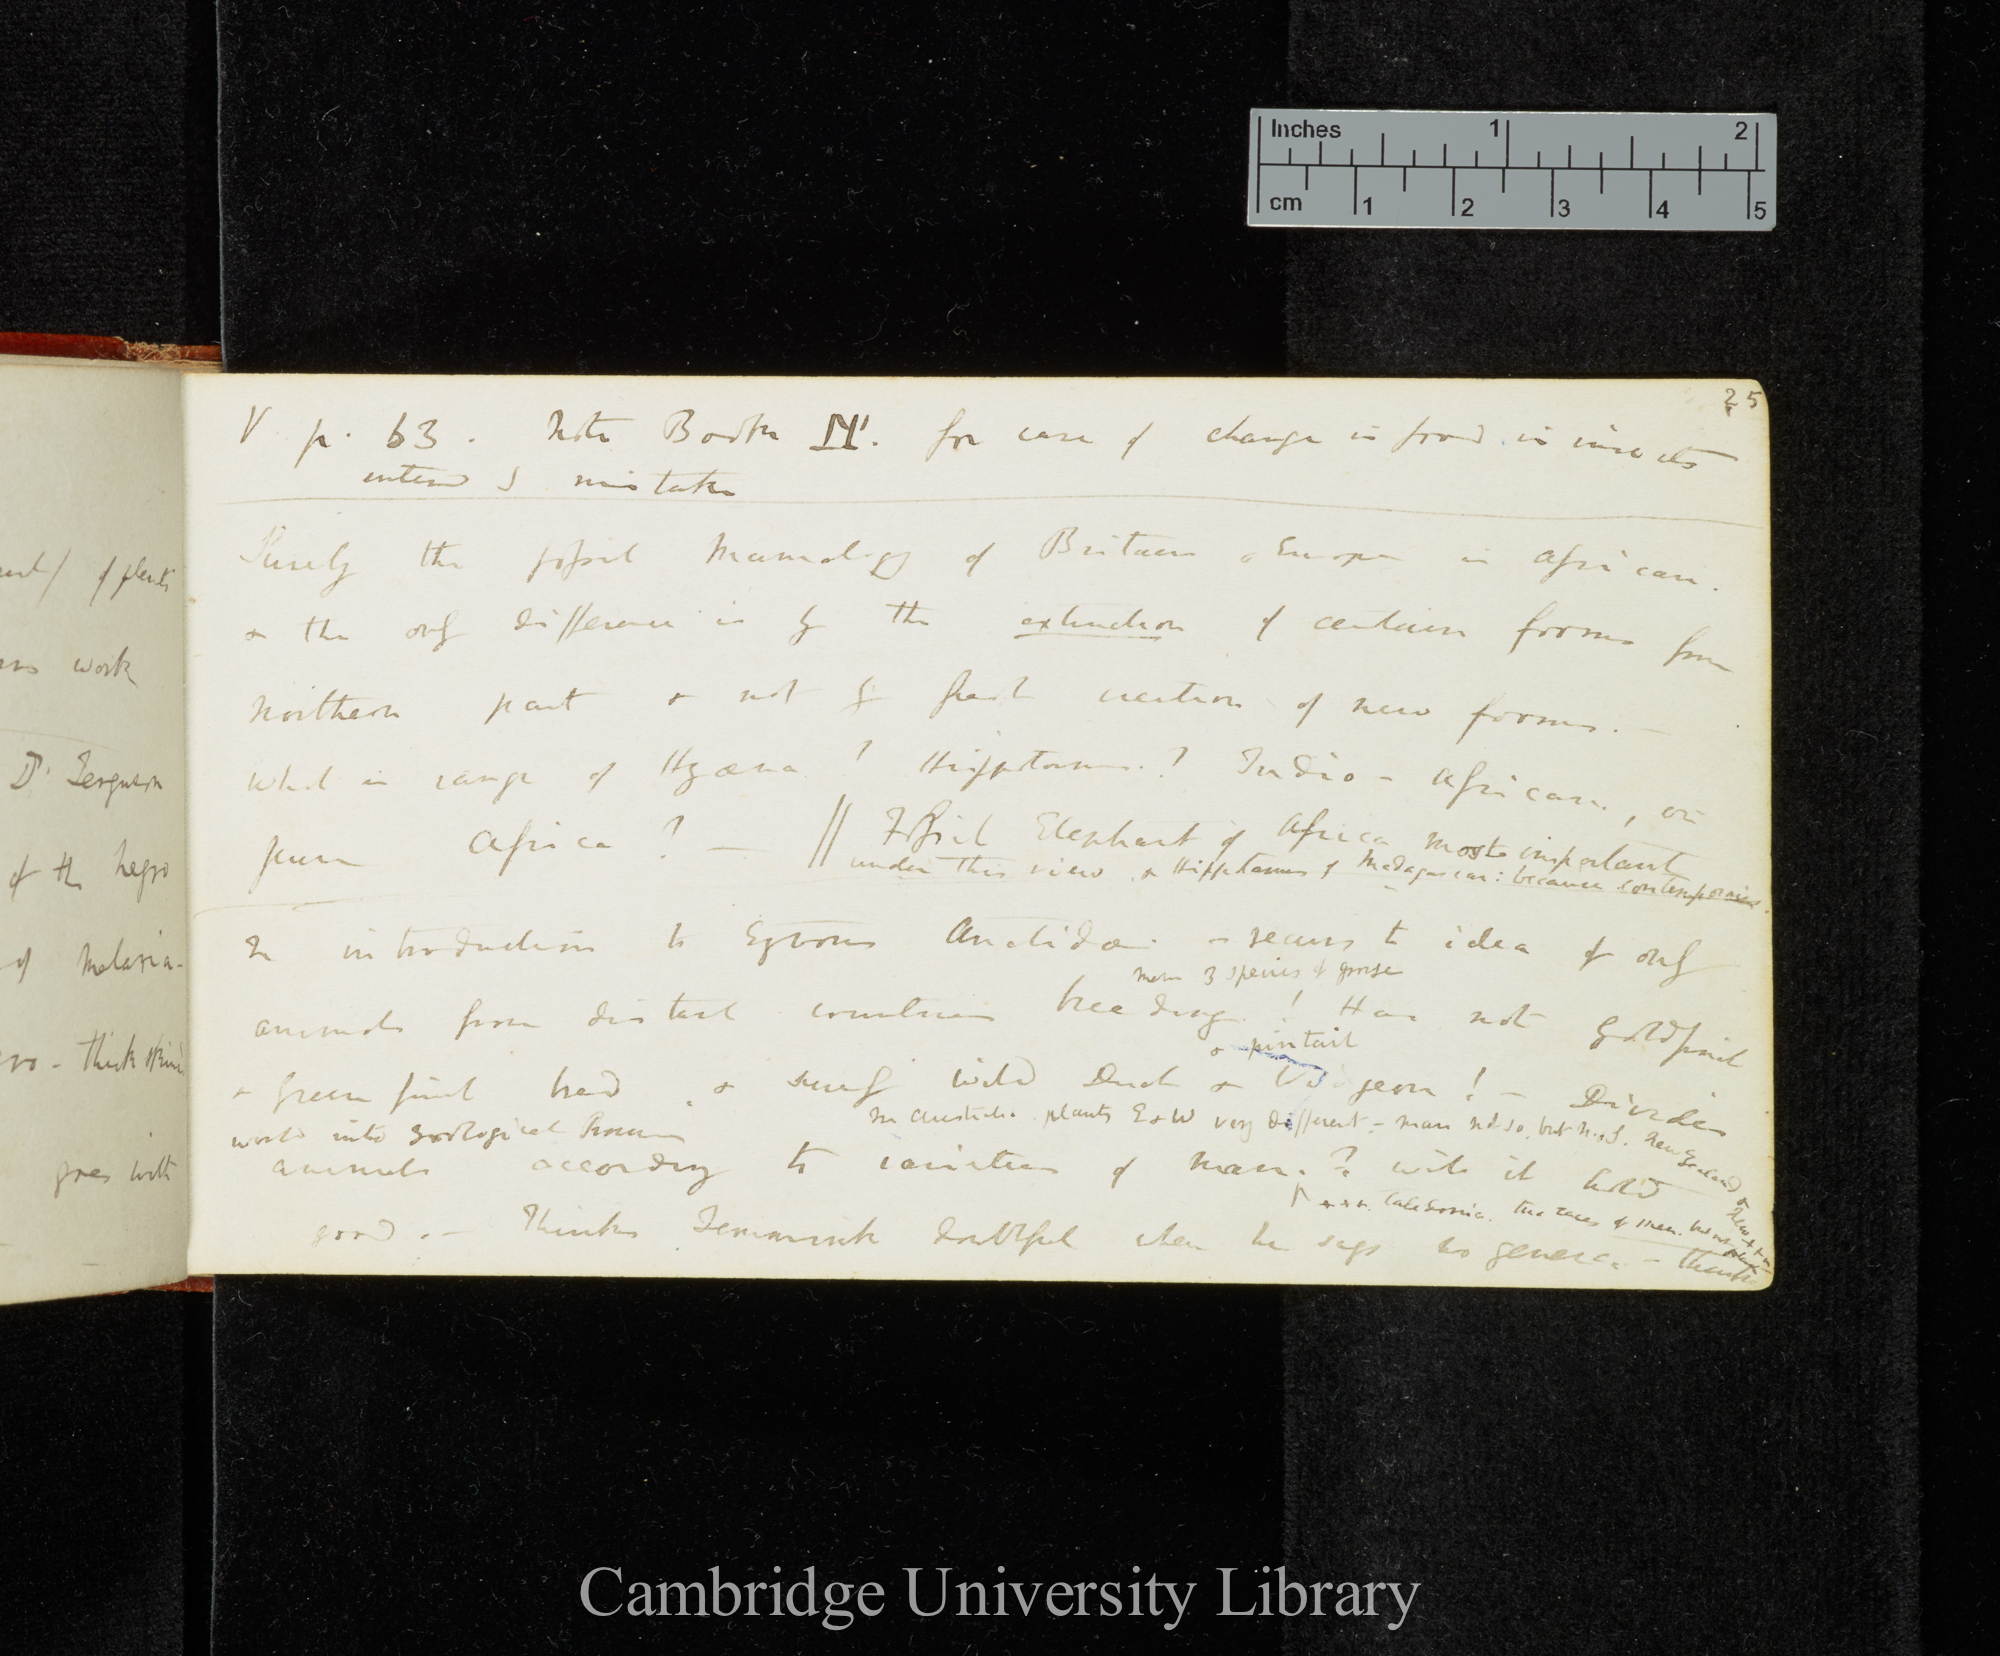 Inches 1 2
cm 1 2 3 4 5
25
V p. 63. Note Book M. for case of change in food in insects
instead of mistake
Surely the fossil mammology of Britain & Europe is African.
& the only difference is by the extinction of certain forms from
northern part & not by fresh creation of new forms. —
What is range of Hyæna? Hippotamus.? Indio-African, or
pure Africa? — || Fossil Elephant of Africa most important
under this view. & Hippotamus of Madagascar: because contemporaries.
In introduction to Eytons Anatidæ. — recurs to idea of only
mem 3 species of grouse
animals from distant countries breeding! Has not Goldfinch
& pintail
& Greenfinch bred. & surely wild Duck & Widgeon! — Divides
world into zoological Provinces
In Australia plants E & W very different – man not so, but N. S. New Zealand & New
animals according to varieties of Man.? will it hold
Caledonia. two races of men. but not
good. — Thinks Temminck doubtful when he says no genera. — thinks
nt/ of plants
work
Dr Ferguson
of the negro
of Malaria-
ro – thick skin
goes with
Cambridge University Library